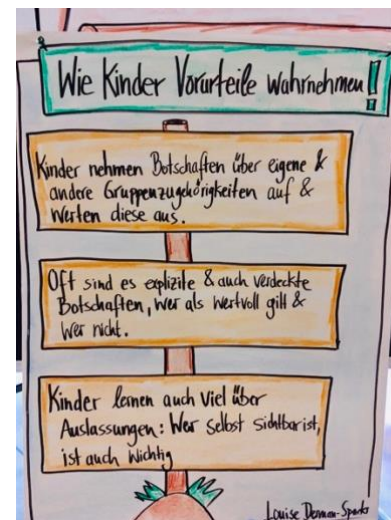 Wie Kinder Vorurteile wahrnehmen!
Kinder nehmen Botschaften über eigene &
andere Gruppenzugehörigkeiten auf &
werten diese aus.
Oft sind es explizite & auch verdeckte
Botschaften, wer als wertvoll gilt &
wer nicht.
Kinder lernen auch viel über
Auslassungen: Wer selbst sichtbar ist,
ist auch wichtig
Louise Derman-Sparks